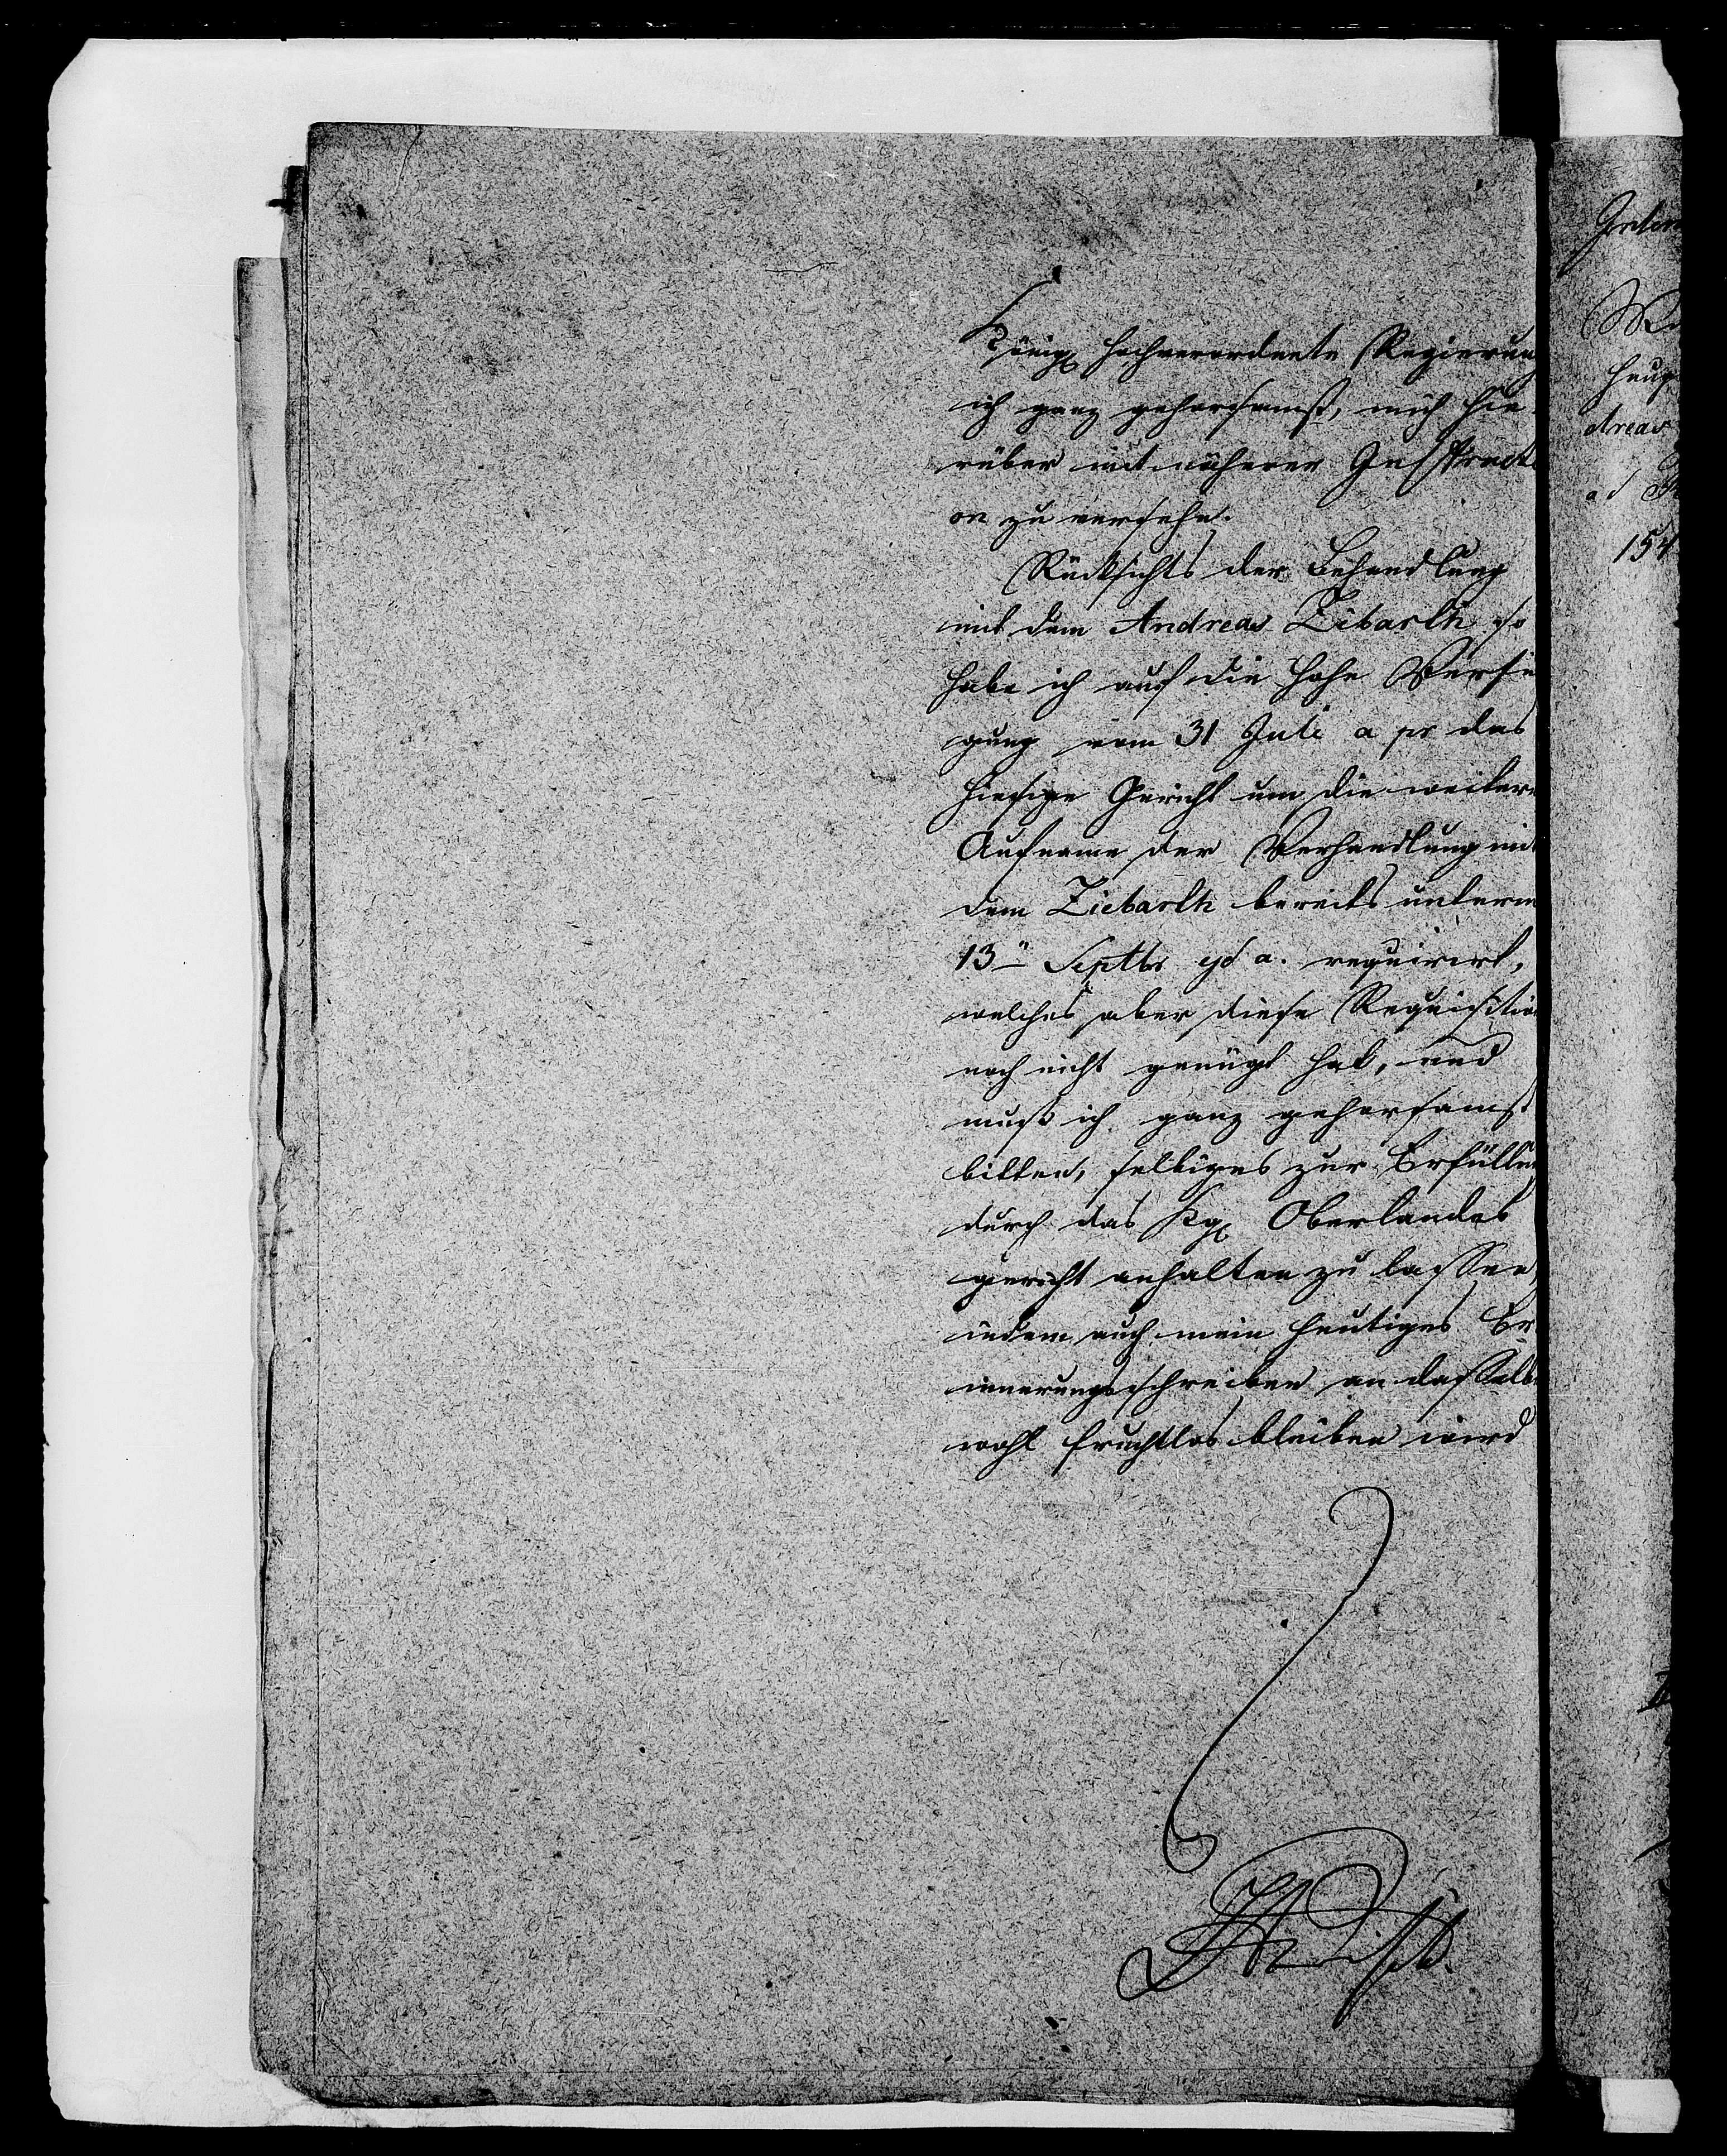 Königl hochverordnete Regierung
ich ganz gehorsamst, mich hie-
rüber mit näherer Instructi
on zu versehn.
Rücksichts der Behandlung
mit dem Andreas Zibarth, so
habe ich auf die hohe Verfü
gung vom 31 Juli a pr das
hiesige Gericht um die weitere
Aufname der Verhandlung mit
dem Ziebarth bereits unterm
13ⁿ Septbr ejd a. requirirt,
welches aber diese Requisition
noch nicht genügt hat, und
muß ich ganz gehorsamst
bitten, selbiges zur Erfüllung
durch das Kgl Oberlandes
gericht anhalten zu lassen,
indem auch mein heutiges Er
innerungsschreiben an dasselbe
wohl fruchtlos bleiben wird
dreas
ad
154